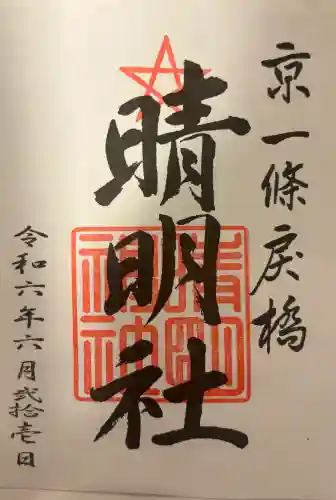 京一條戻橋
晴明社
令和六年六月弐拾壱日